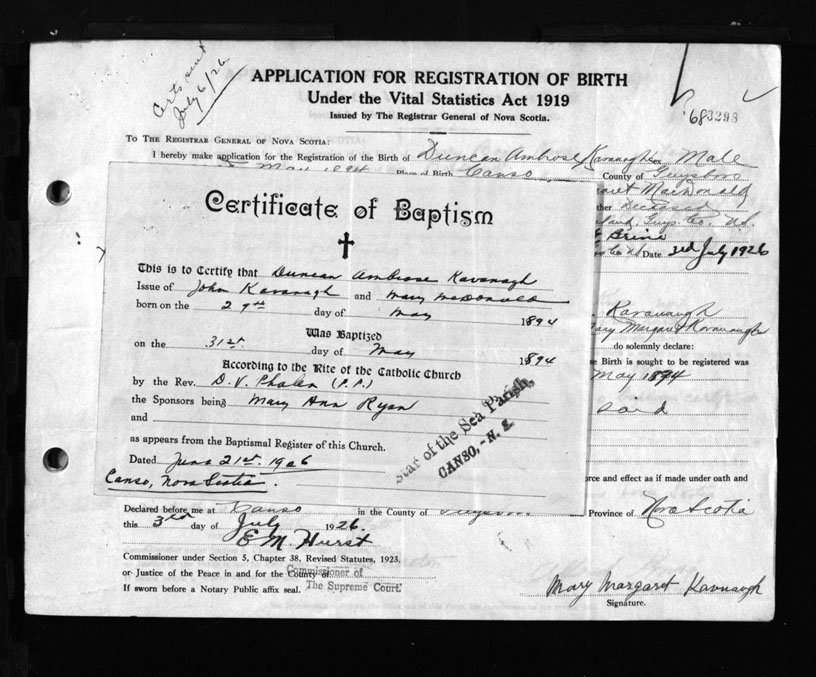 Certs sent
July 6/26
APPLICATION FOR REGISTRATION OF BIRTH
Under the Vital Statistics Act 1919
Issued by The Registrar General of Nova Scotia.
683298
TO THE REGISTRAR GENERAL OF NOVA SCOTIA:
I hereby make application for the Registration of the Birth of Duncan Ambrose Kavanagh Male
May 1894 Place of Birth Canso County of Guysboro
Margaret MacDonald
Deceased
Guys. Co. N.S.
Date 3rd July 1926
Certificate of Baptism
This is to Certify that Duncan Ambrose Kavanagh
Issue of John Kavanagh and Mary McDonald
born on the 29th day of May 1894
Was Baptized
on the 31st day of May 1894
According to the Rite of the Catholic Church
by the Rev. D. V. Phalen (P.P.)
the Sponsors being Mary Ann Ryan
and
as appears from the Baptismal Register of this Church.
Dated June 21st. 1926
Canso, Nova Scotia.
Star of the Sea Parish,
CANSO, - N. S.
Kavanagh
Mary Margaret Kavanaugh
do solemnly declare:
Birth is sought to be registered was
May 1894
said
force and effect as if made under oath and
Declared before me at Canso in the County of Guysboro Province of Nova Scotia
this 3rd day of July 1926.
E M Hurst
Commissioner under Section 5, Chapter 38, Revised Statutes, 1923.
or Justice of the Peace in and for the County of Commissioner of
If sworn before a Notary Public affix seal. The Supreme Court
Mary Margaret Kavnaugh
Signature.